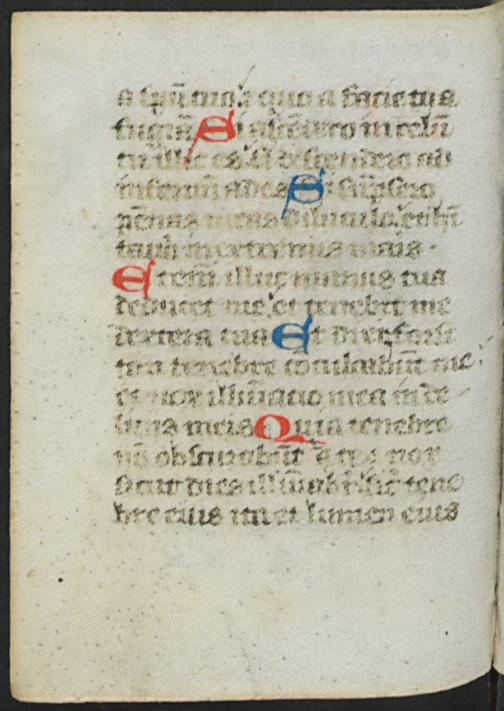 a sp̄u tuo: ⁊ quo a facie tua
fugiā Si ascēdero in celū
tu illic es si descendero ad
infernū ades Si sūpsero
pēnas meas diluculo ⁊ habi
tauō in extremis maris.
Etenī illuc manus tua
deducet me: et tenebit me
dextera tua Et dixi forsi
tan tenebre cōculcabūt me:
et nox illūinatio mea in de
liciis meis Quia tenebre
nō obscurabūt a te ⁊ nox
sicut dies illūabit sic tene
bre eius ita et lumen eius